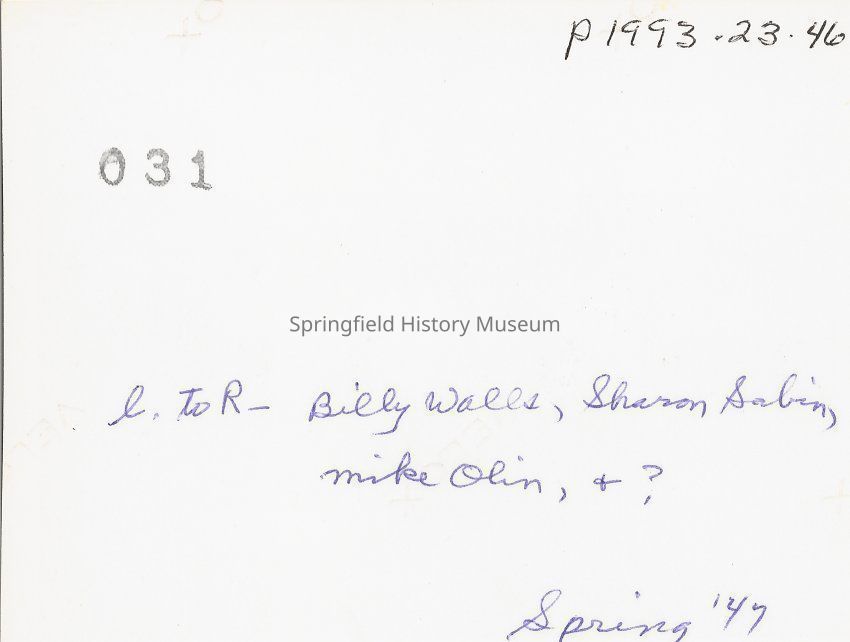 P1993.23.46
031
Springfield History Museum
L. to R – Billy Walls, Sharon Sabin,
Mike Olin, & ?
Spring '47